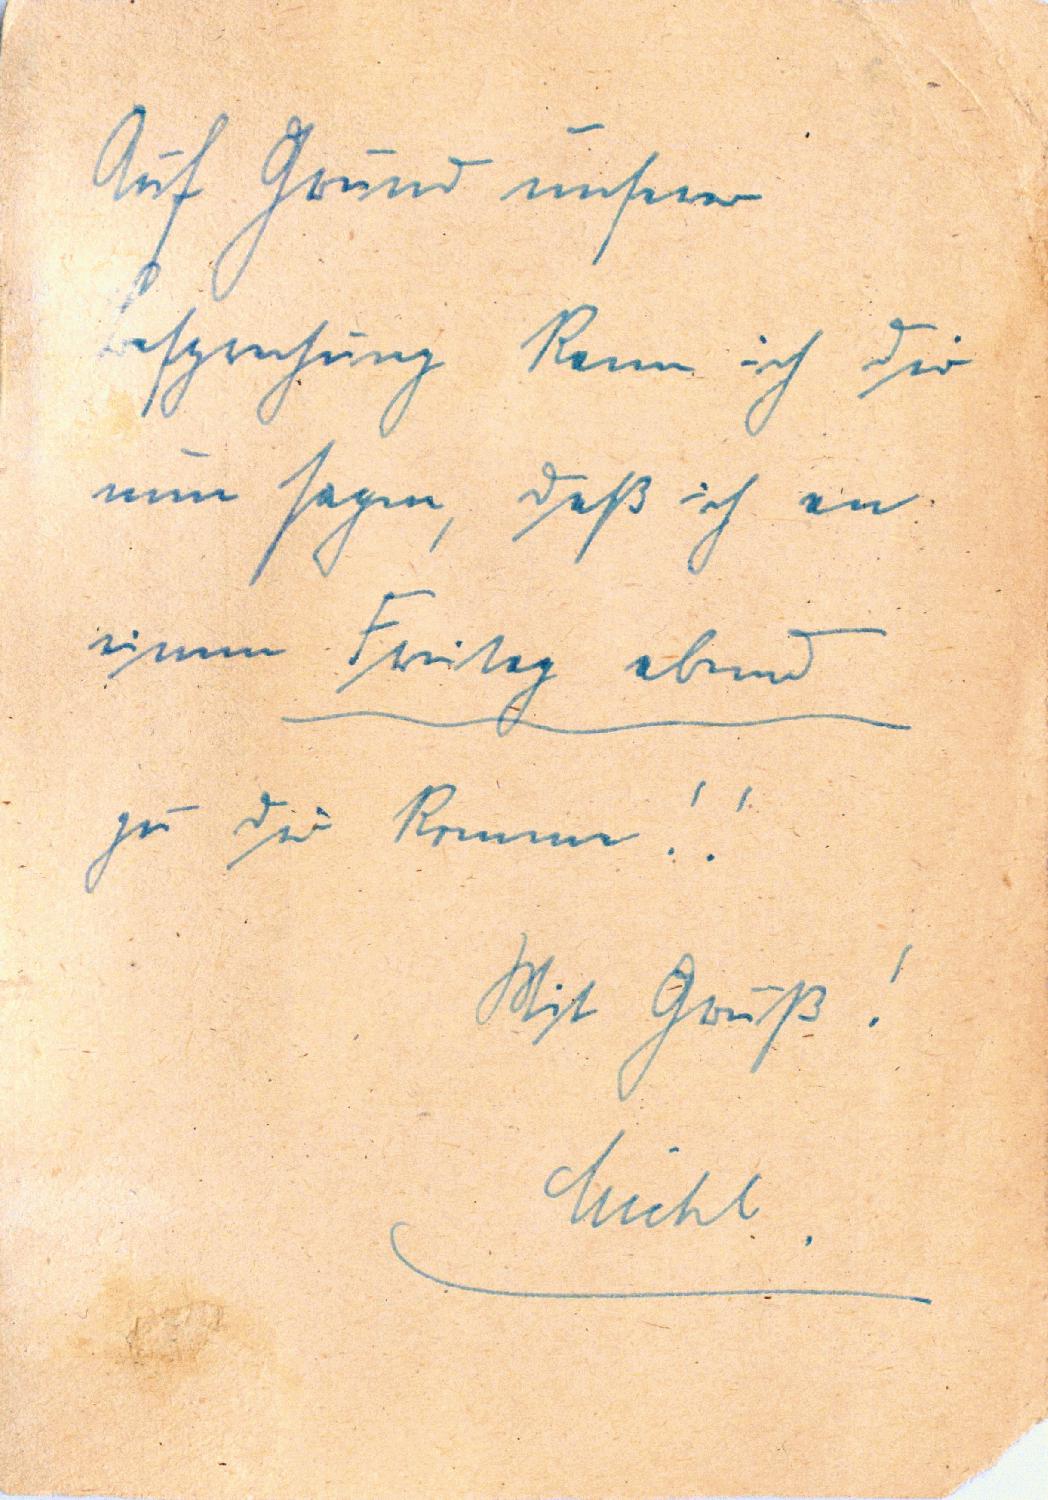 Auf Grund unserer
Besprechung kann ich dir
nun sagen, daß ich an
einem Freitag abend
zu dir komme!!
Mit Gruß!
Michl.